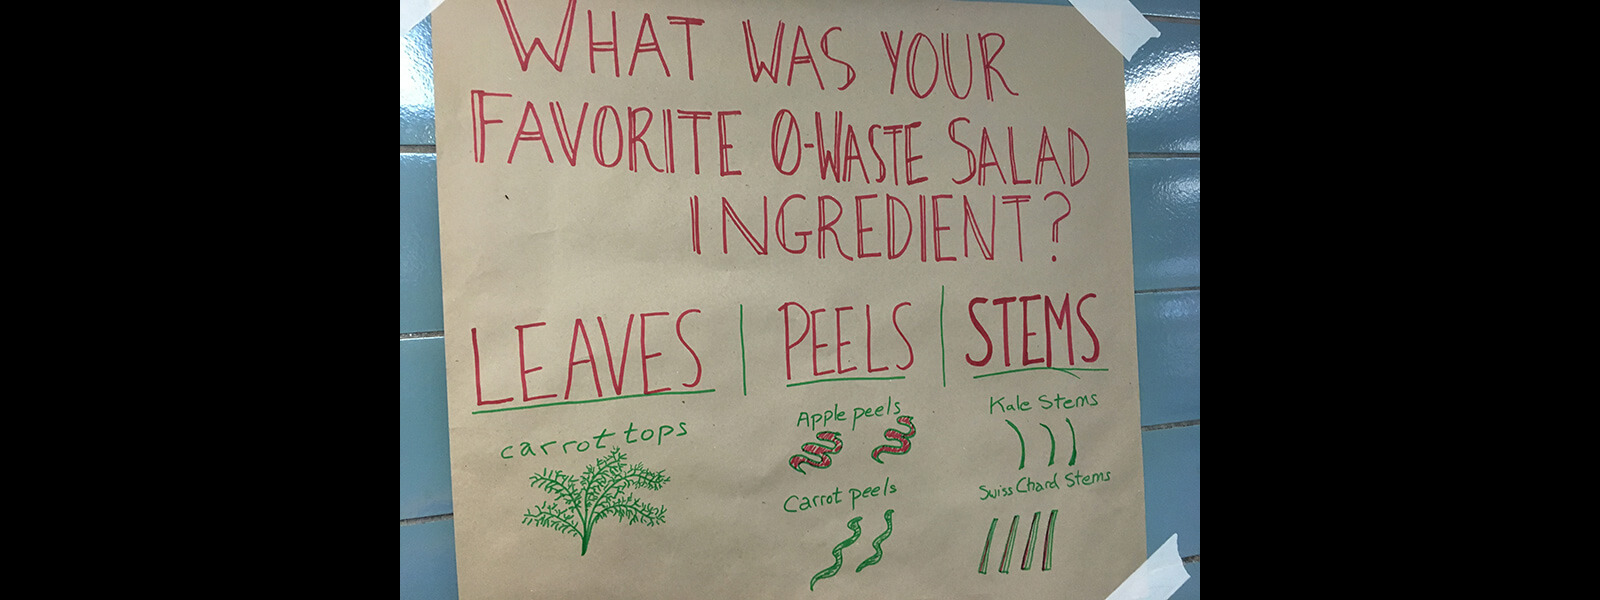 WHAT WAS YOUR
FAVORITE 0-WASTE SALAD
INGREDIENT?
LEAVES | PEELS | STEMS
carrot tops
Apple peels
Carrot peels
Kale Stems
Swiss Chard Stems